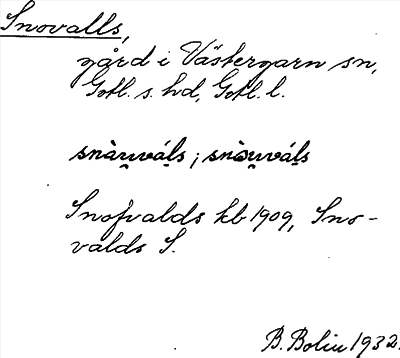 Snovalls,
gård i Västergarn sn,
Gotl. s. hd, Gotl. l.
snàu̯váls ; snòu̯váls
Snofvalds kb 1909, Sno-
valds S.
B. Bolin 1932.